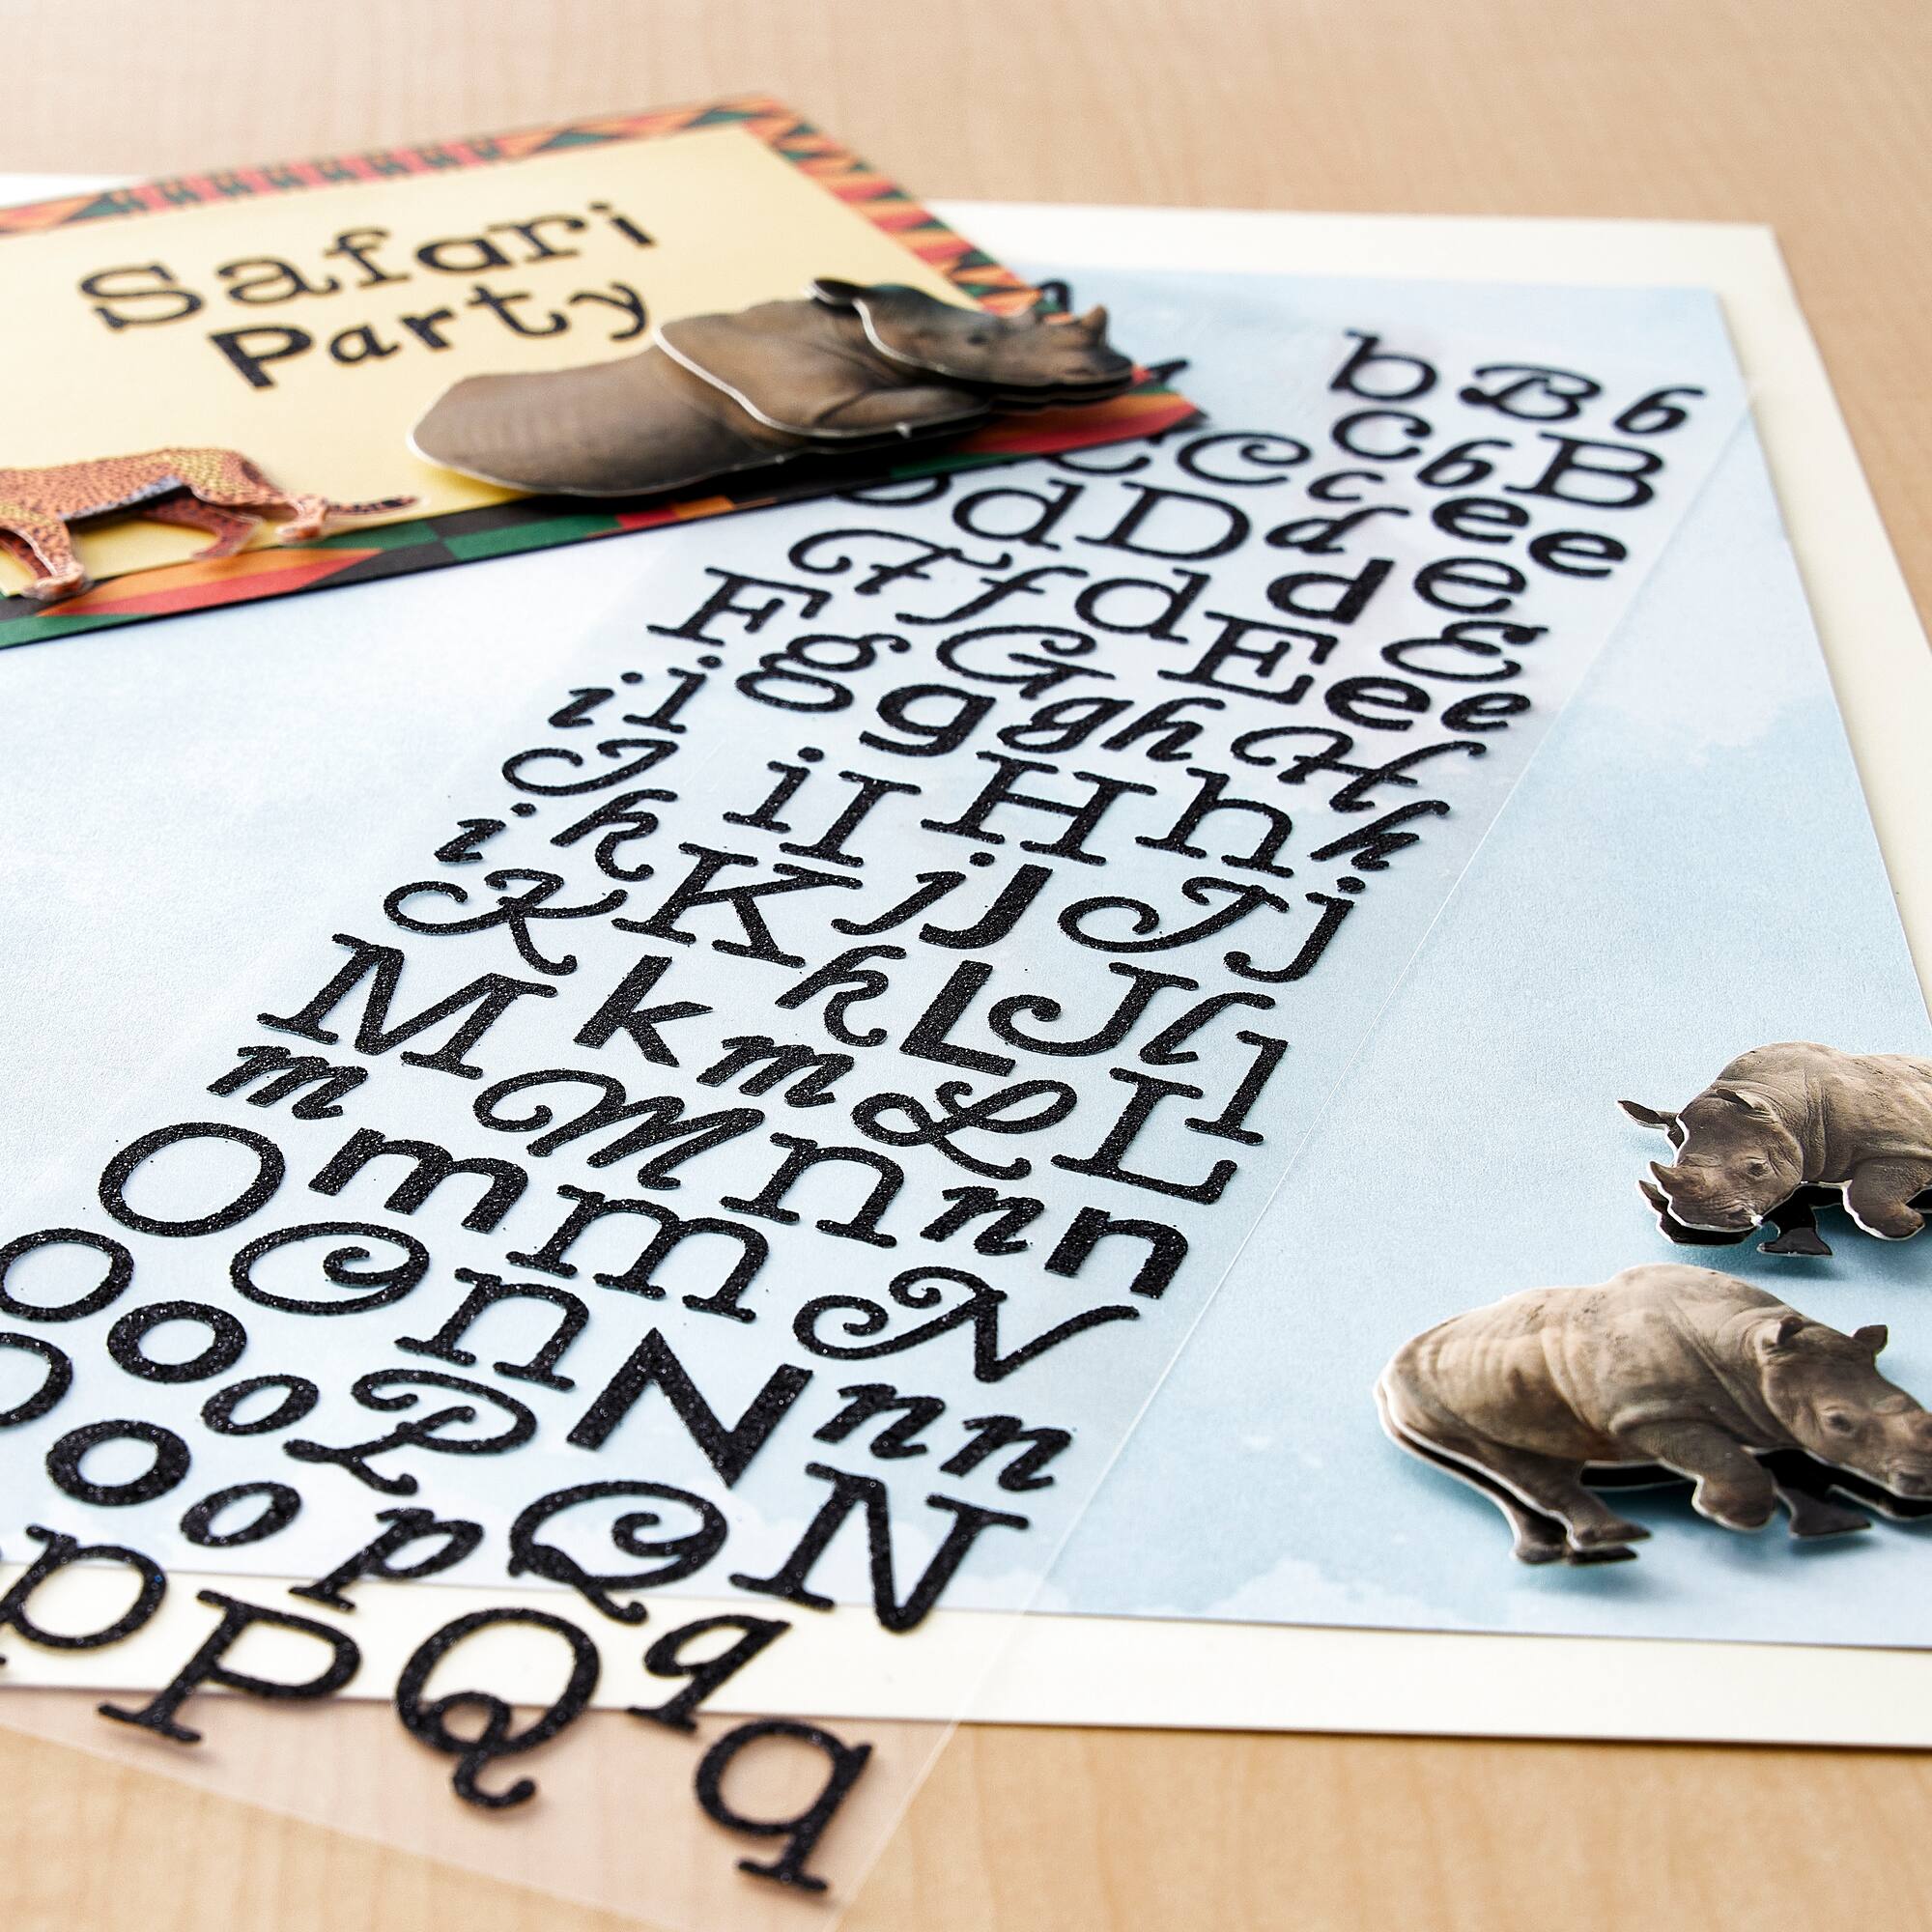 Safari
Party
b B b
C b B
C C c e e
D d D d d e
F f d E E e
F g G g h H e
i i g g h
J i I H h j
i k K j J J j
K k L J l l
M k m L L
m M n n n
O m m N
o O n N n n
o o P Q N
o o p q
p P Q q